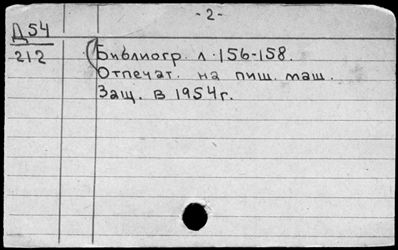 - 2 -
Д 54
212
(Библиогр. л. 156-158.
Отпечат. на пиш. маш.
Защ. в 1954 г.